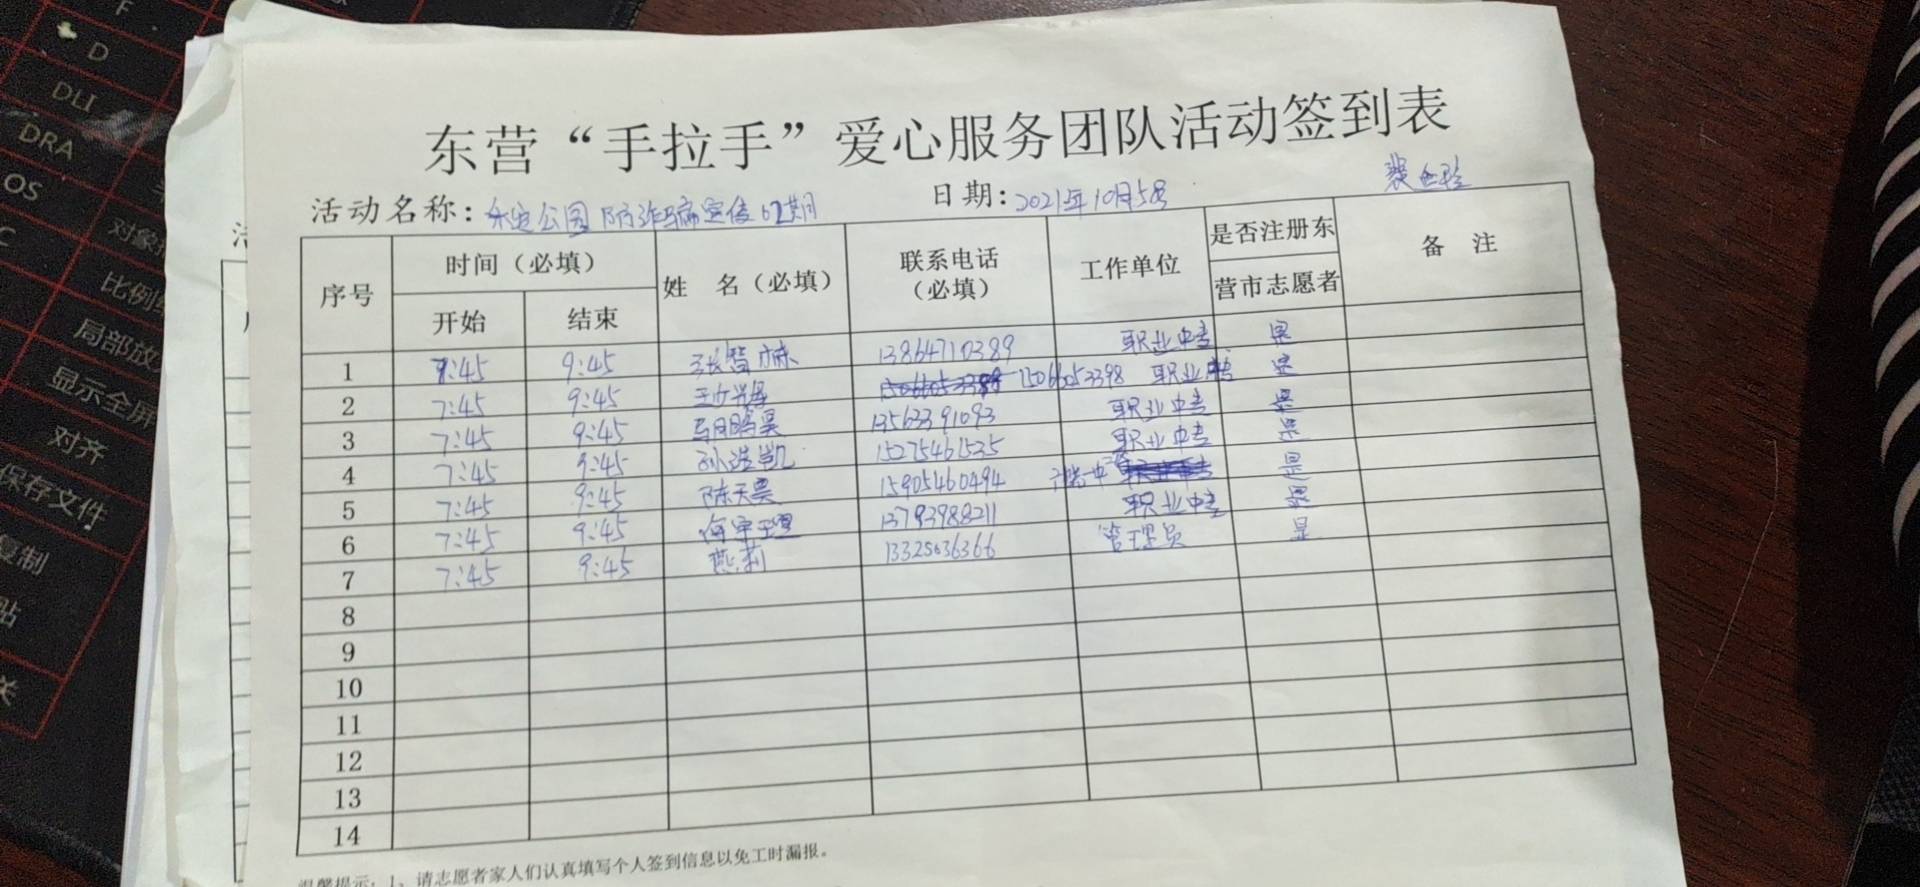 东营“手拉手”爱心服务团队活动签到表
活动名称：永安公园防诈骗宣传62期 日期：2021年10月5号
序号 时间（必填） 姓 名（必填） 联系电话（必填） 工作单位 是否注册东营市志愿者 备 注
开始 结束
1 7:45 9:45 张智赫 13864710389 职业中专 是
2 7:45 9:45 15066053398 职业中专 是
3 7:45 9:45 13563391093 职业中专 是
4 7:45 9:45 孙浩凯 15275461535 职业中专 是
5 7:45 9:45 陈天昊 15905460494 是
6 7:45 9:45 13793988211 职业中专 是
7 7:45 9:45 燕莉 13325036366 管理员 是
8
9
10
11
12
13
14
温馨提示：1、请志愿者家人们认真填写个人签到信息以免工时漏报。
F
D
DLI
DRA
OS
C
对象
比例
局部放
显示全屏
对齐
保存文件
复制
贴
关